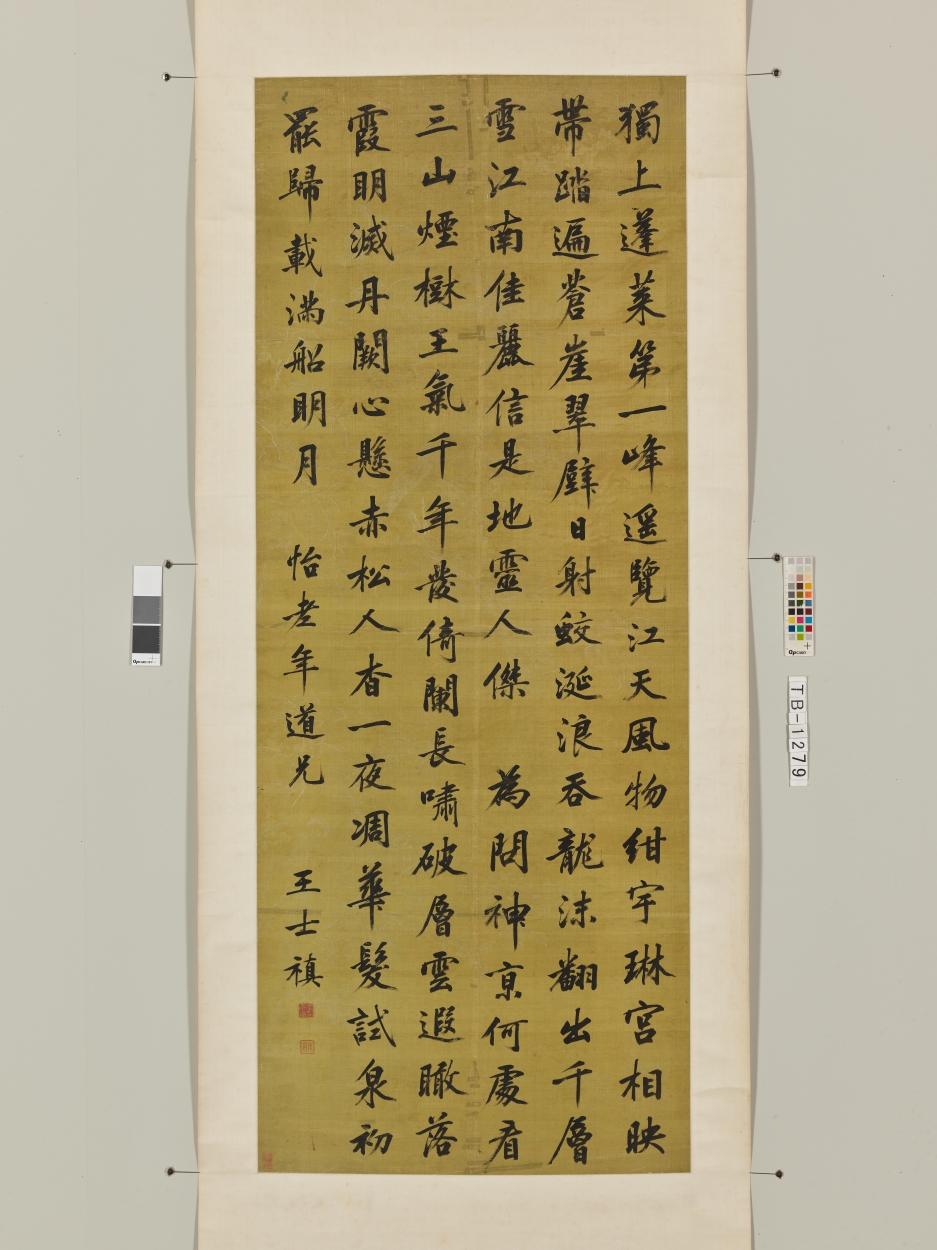 獨上蓬萊第一峰遥覽江天風物紺宇琳宮相映
帶踏遍蒼崖翠壁日射蛟涎浪吞龍沫翻出千層
雪江南佳麗信是地靈人傑 為問神京何處看
三山煙樹王氣千年發倚闌長嘯破層雲遐瞰落
霞明滅丹闕心懸赤松人杳一夜凋華髮試泉初
罷歸載滿船明月 怡老年道兄 王士禛
TB-1279